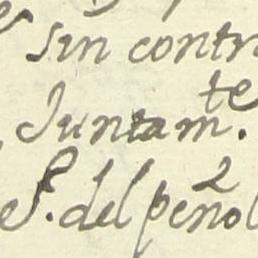 sin contr
Juntam.te
S. del peñol